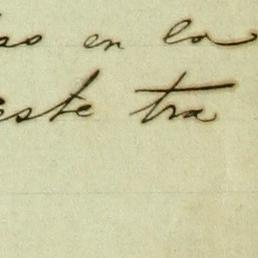 so en la
este tra